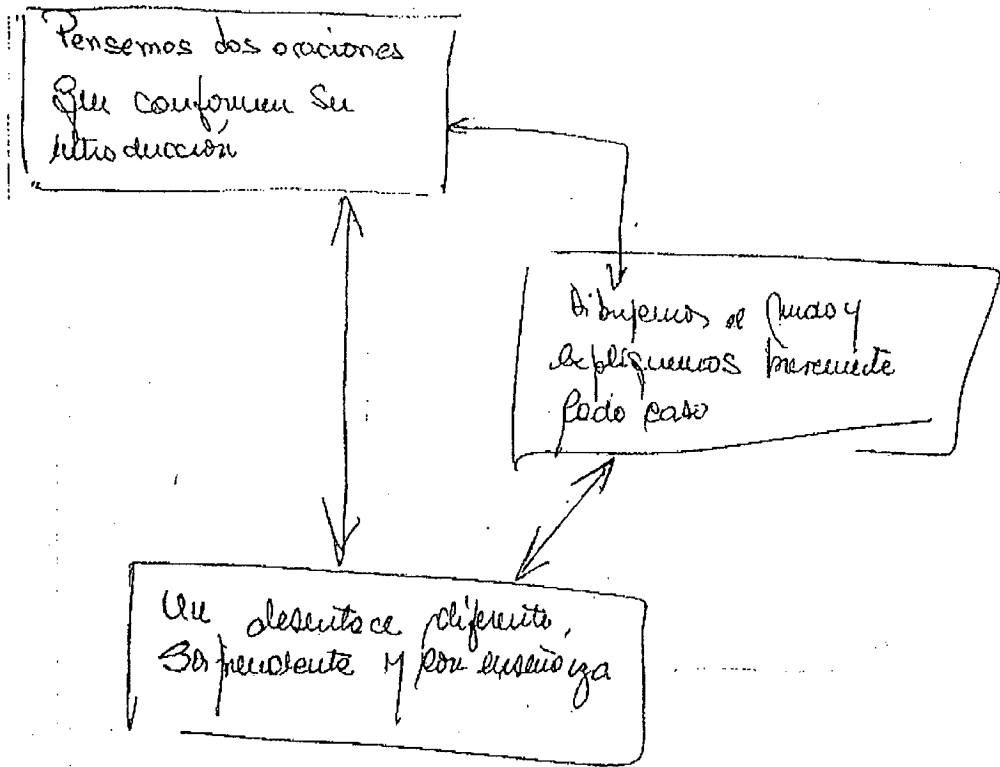 Pensemos dos oraciones
que conformen su
introducción
Dibujemos el nudo y
expliquemos brevemente
cada caso
Un desenlace diferente,
sorprendente y con enseñanza